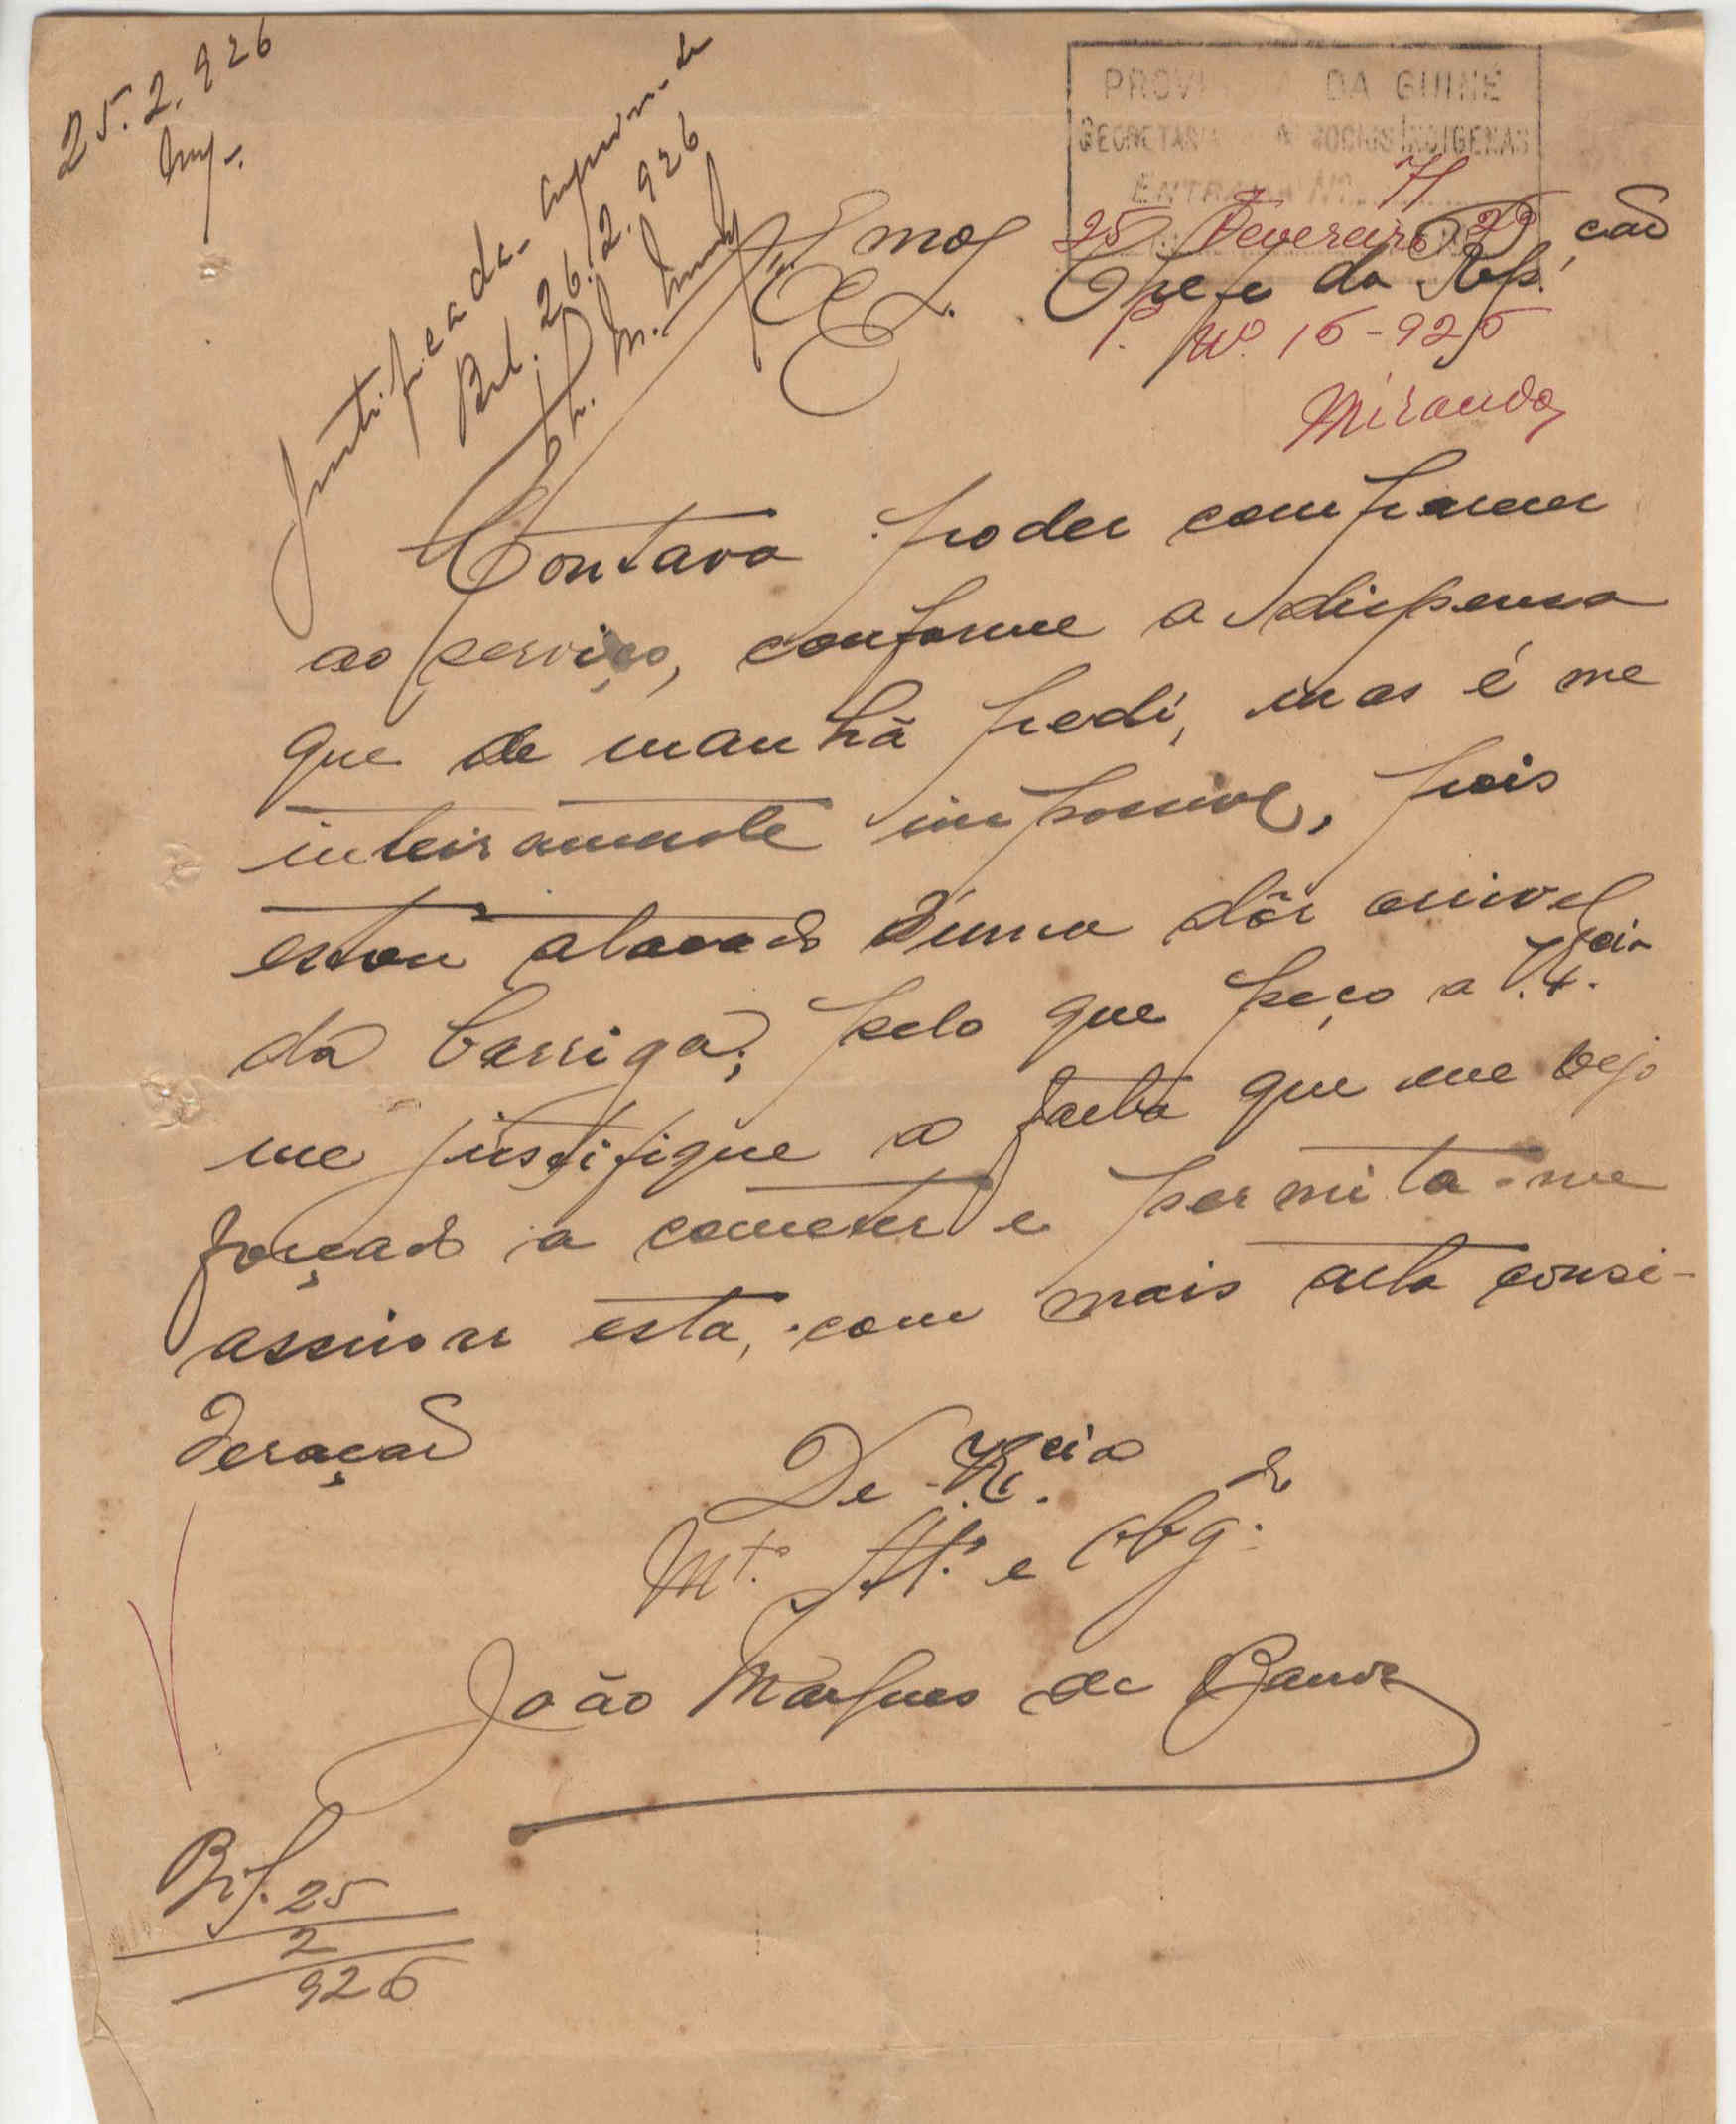 25.2.926
Justificada.
Bol. 26.2.926
PROVINCIA DA GUINÉ
SECRETARIA NEGOCIOS INDIGENAS
ENTRADA Nº 71
25 Fevereiro 26
P. Nº 16-925
Miranda
Exmo
Chefe da Rep.ção
Contava poder comparecer
ao serviço, conforme a dispensa
que de manhã pedí, mas é me
inteiramente impossivel, pois
estou atacado d'uma dôr orivel
da barriga; pelo que peço a V. Ex.cia
me justifique a falta que me vejo
forçado a cometer e permita-me
assinar esta, com mais alta consi-
deração
De V. Ex.cia
Mt.º At.º e Obg.do
João Marques de Barros
Bis. 25
2
926